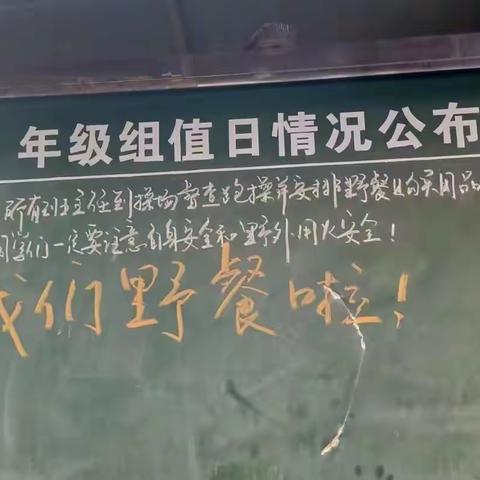 年级组值日情况公布
所有班主任到操场督查跑操并安排野餐购买用品
同学们一定要注意自身安全和野外用火安全！
我们野餐啦！